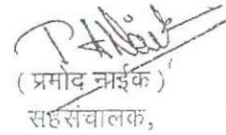 ( प्रमोद नाईक )
सहसंचालक,